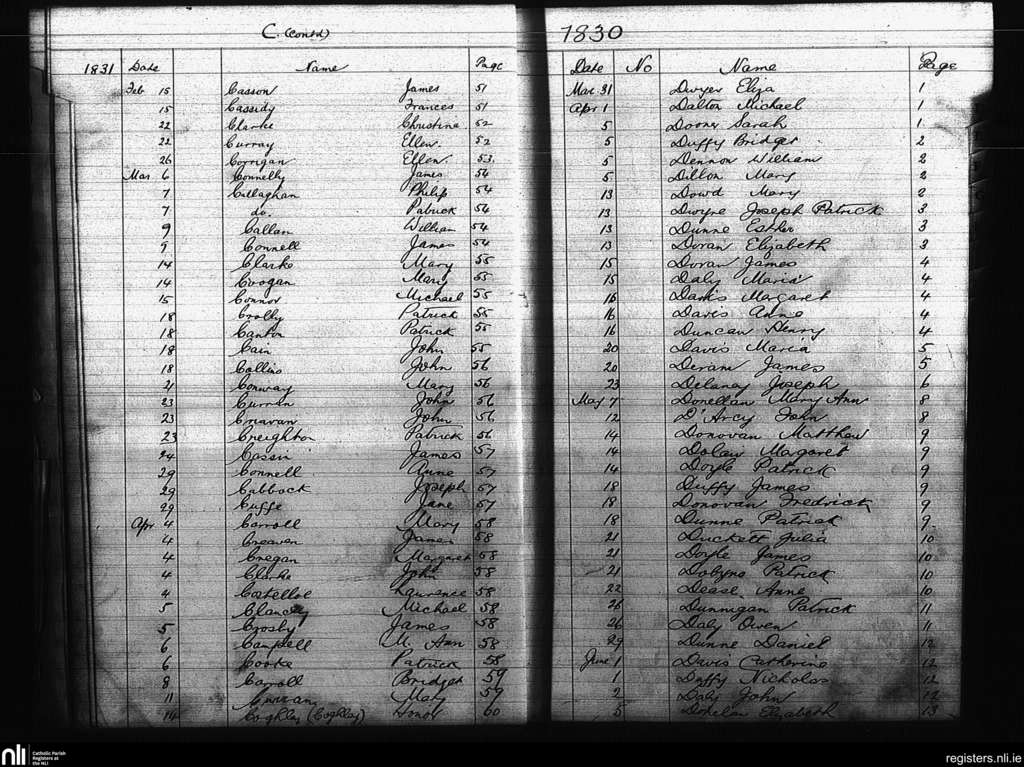 C. (contd)
1831 Date Name Page
Feb 15 Casson James 51
15 Cassidy Frances 51
22 Clarke Christina 52
22 Curray Ellen 52
26 Corrigan Ellen 53
Mar 6 Connelly James 54
7 Callaghan Philip 54
7 do. Patrick 54
9 Callan William 54
9 Connell James 54
14 Clarke Mary 55
14 Coogan Mary 55
15 Connor Michael 55
18 Crolly Patrick 55
18 Canton Patrick 55
18 Cain John 55
18 Collins John 56
21 Conway Mary 56
23 Curran John 56
23 Cnavan John 56
23 Creighton Patrick 56
24 Cassin James 57
29 Connell Anne 57
29 Cubbock Joseph 57
29 Cuffe Jane 57
Apr 4 Carroll Mary 58
4 Creaven James 58
4 Cregan Margaret 58
4 Clarke John 58
4 Costelloe Laurence 58
5 Clancy Michael 58
5 Crosby James 58
6 Campell M. Ann 58
6 Cooke Patrick 58
8 Carroll Bridget 59
11 Curran Mary 59
14 Coghley (Coghlay) Honor 60
1830
Date No Name Page
Mar 31 Dwyer Eliza 1
Apr 1 Dalton Michael 1
5 Dooner Sarah 1
5 Duffy Bridget 2
5 Dennon William 2
5 Dillon Mary 2
13 Dowd Mary 2
13 Dwyre Joseph Patrick 3
13 Dunne Esther 3
13 Doran Elizabeth 3
15 Doran James 4
15 Daly Maria 4
16 Danks Margaret 4
16 Davis Anne 4
16 Duncan Henry 4
20 Davis Maria 5
20 Deram James 5
23 Delaney Joseph 6
May 7 Donellan Mary Ann 8
12 D'Arcy John 8
14 Donovan Matthew 9
14 Dolan Margaret 9
14 Doyle Patrick 9
18 Duffy James 9
18 Donovan Fredrick 9
18 Dunne Patrick 9
21 Duckett Julia 10
21 Doyle James 10
21 Dobyns Patrick 10
22 Dease Anne 10
26 Dunnigan Patrick 11
26 Daly Owen 11
29 Dunne Daniel 12
June 1 Davis Catherine 12
1 Duffy Nicholas 12
2 Daly John 12
5 Elizabeth 13
nli Catholic Parish Registers at the NLI
registers.nli.ie